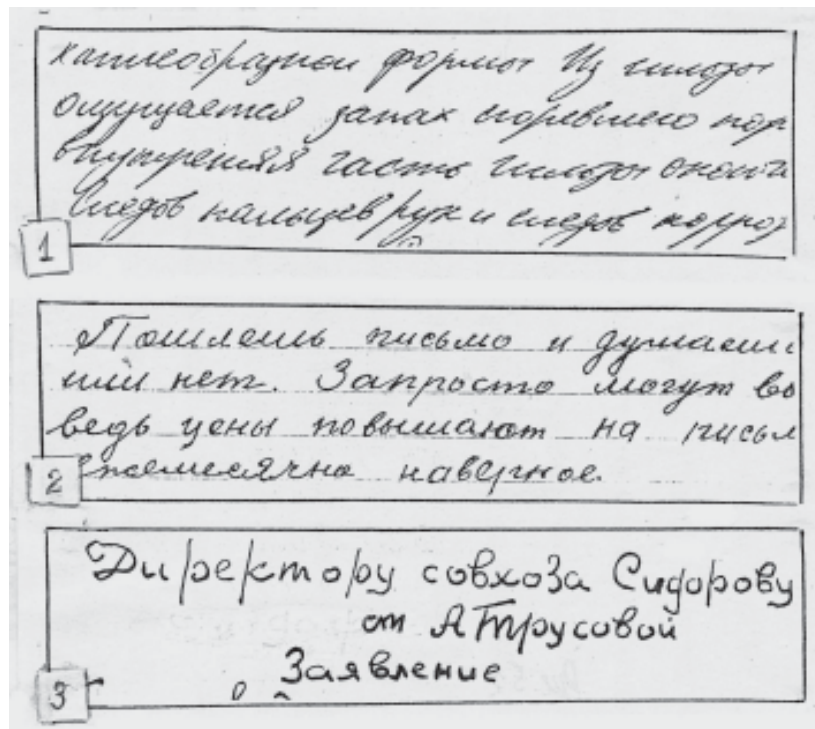 каплеобразной формы Из гильзы
ощущается запах сгоревшего пор
внутренняя часть гильзы
Следов пальцев рук и следов
1
Пошлешь письмо и думаешь
или нет. Запросто могут во
ведь цены повышают на письм
ежемесячно наверное.
2
Директору совхоза Сидорову
от А Трусовой
Заявление
3